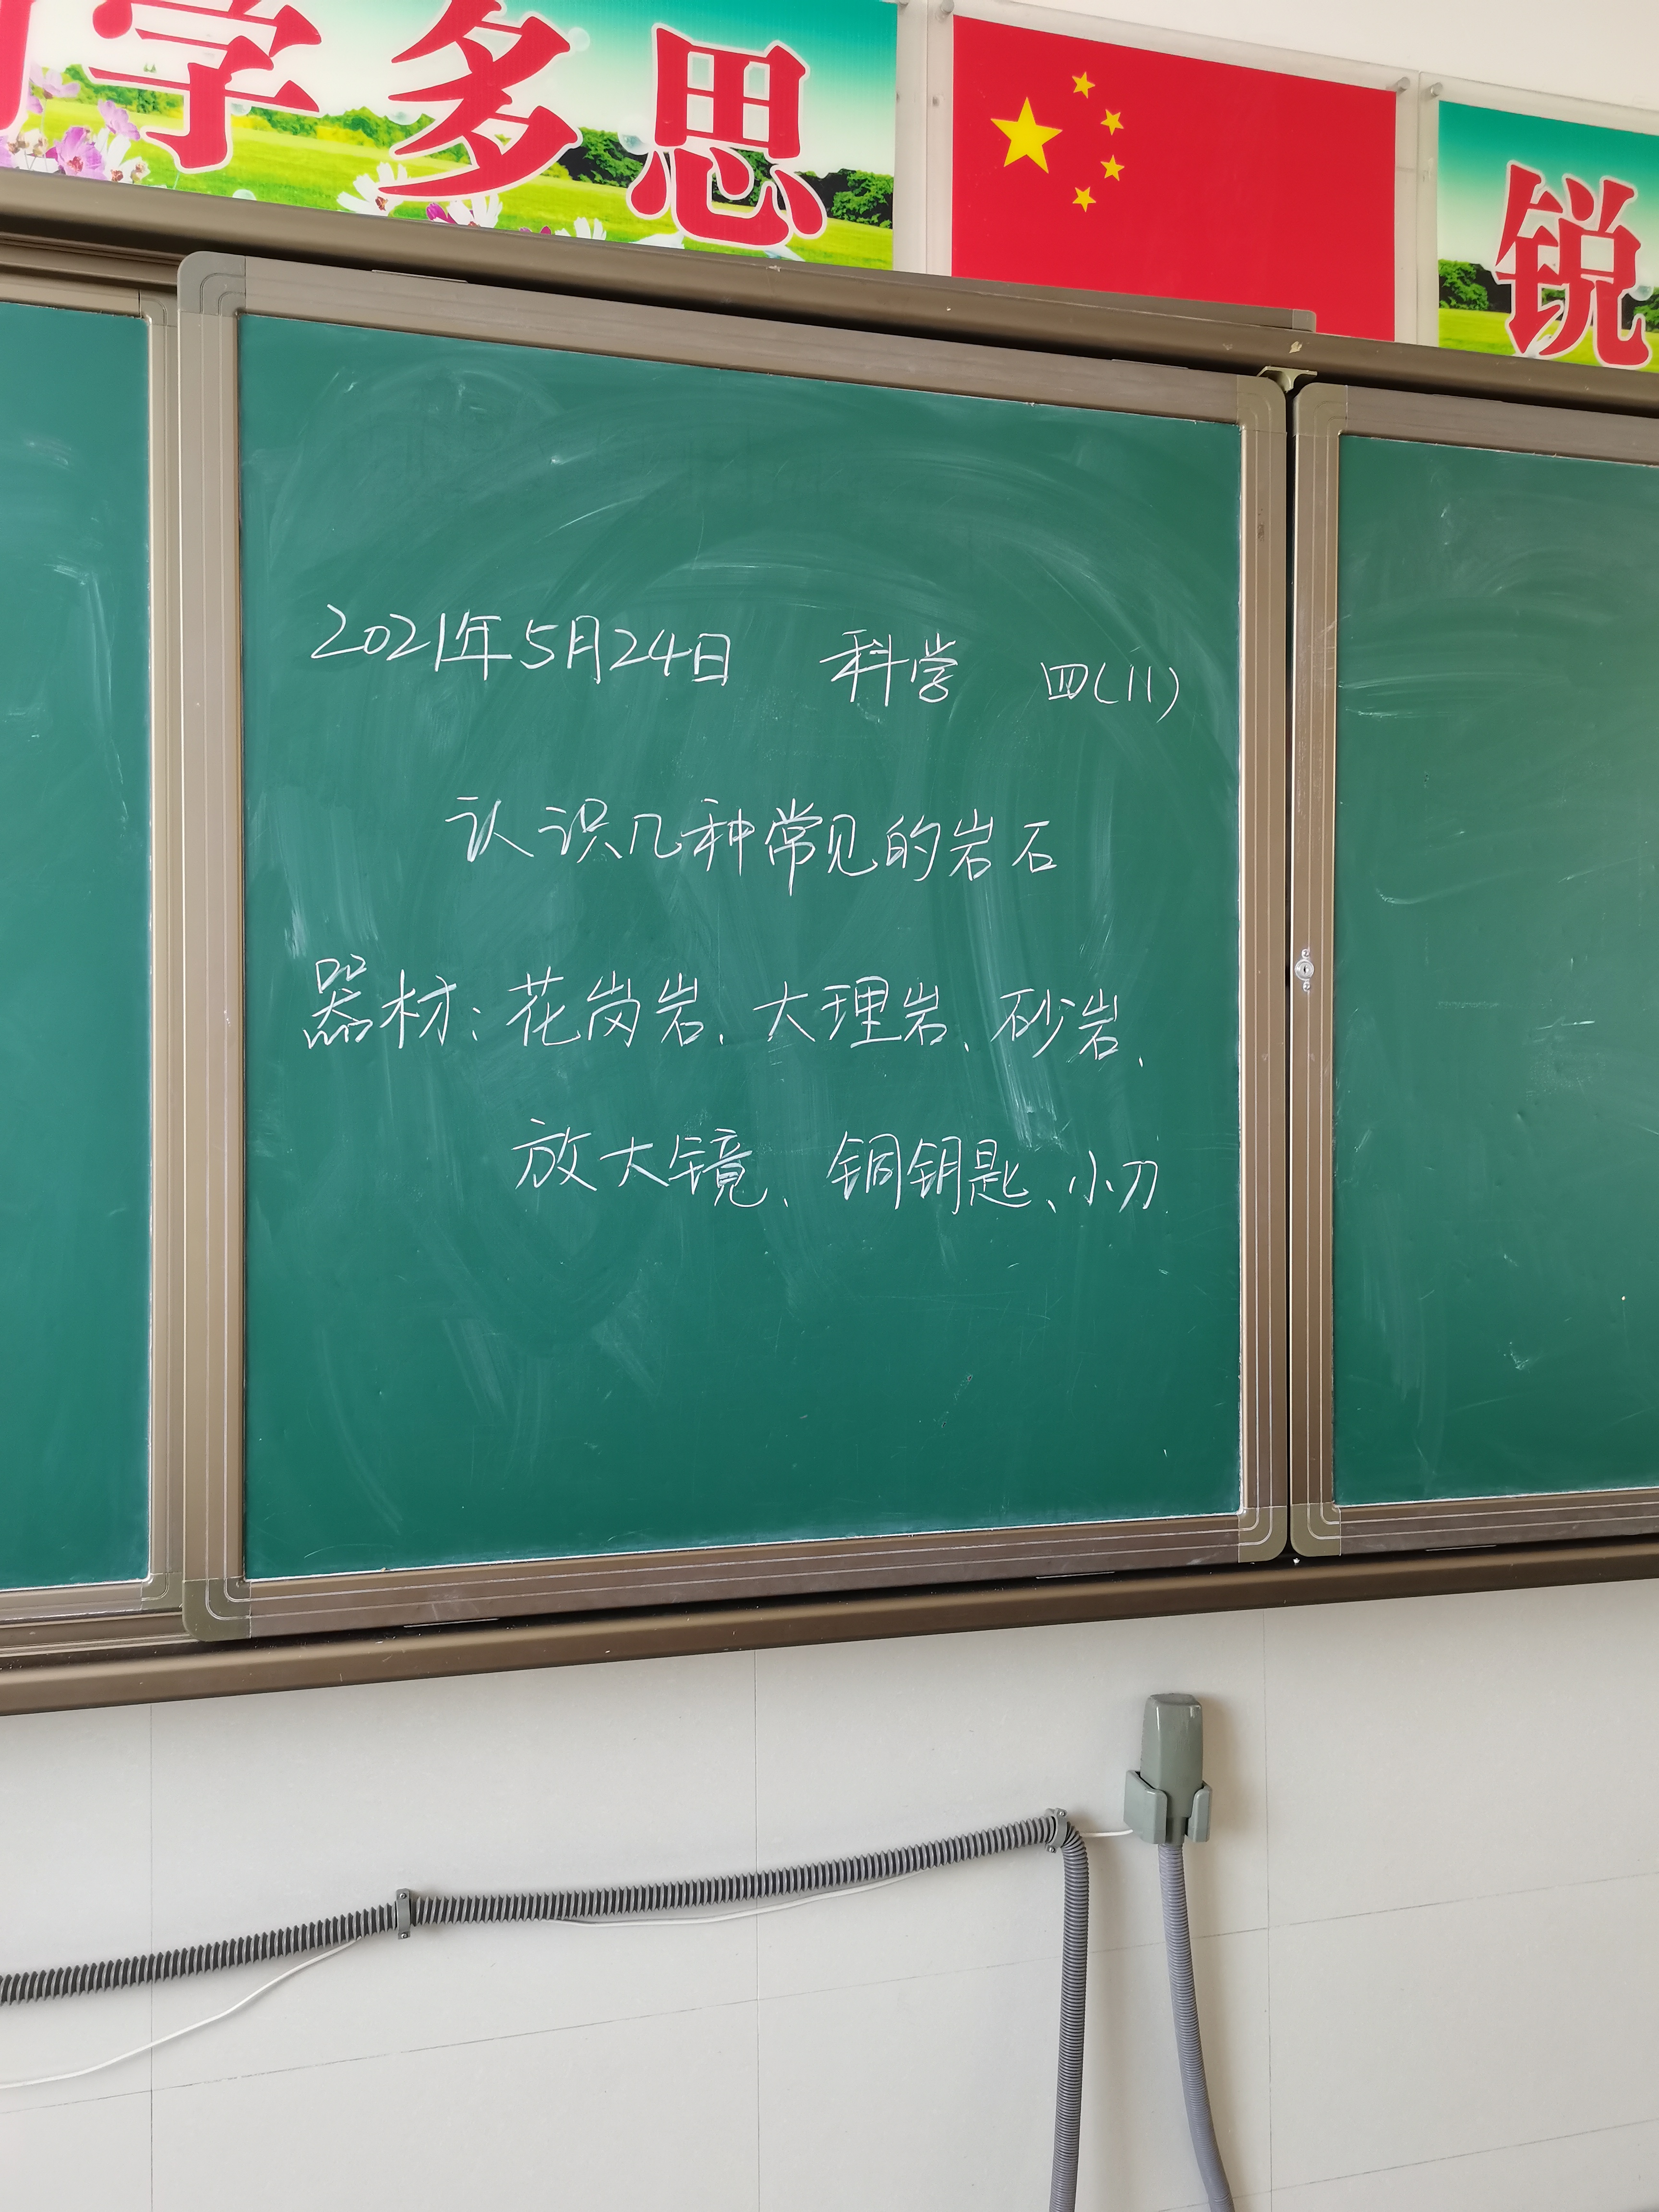 学多思
锐
2021年5月24日 科学 四(11)
认识几种常见的岩石
器材:花岗岩、大理岩、砂岩、
放大镜、铜钥匙、小刀